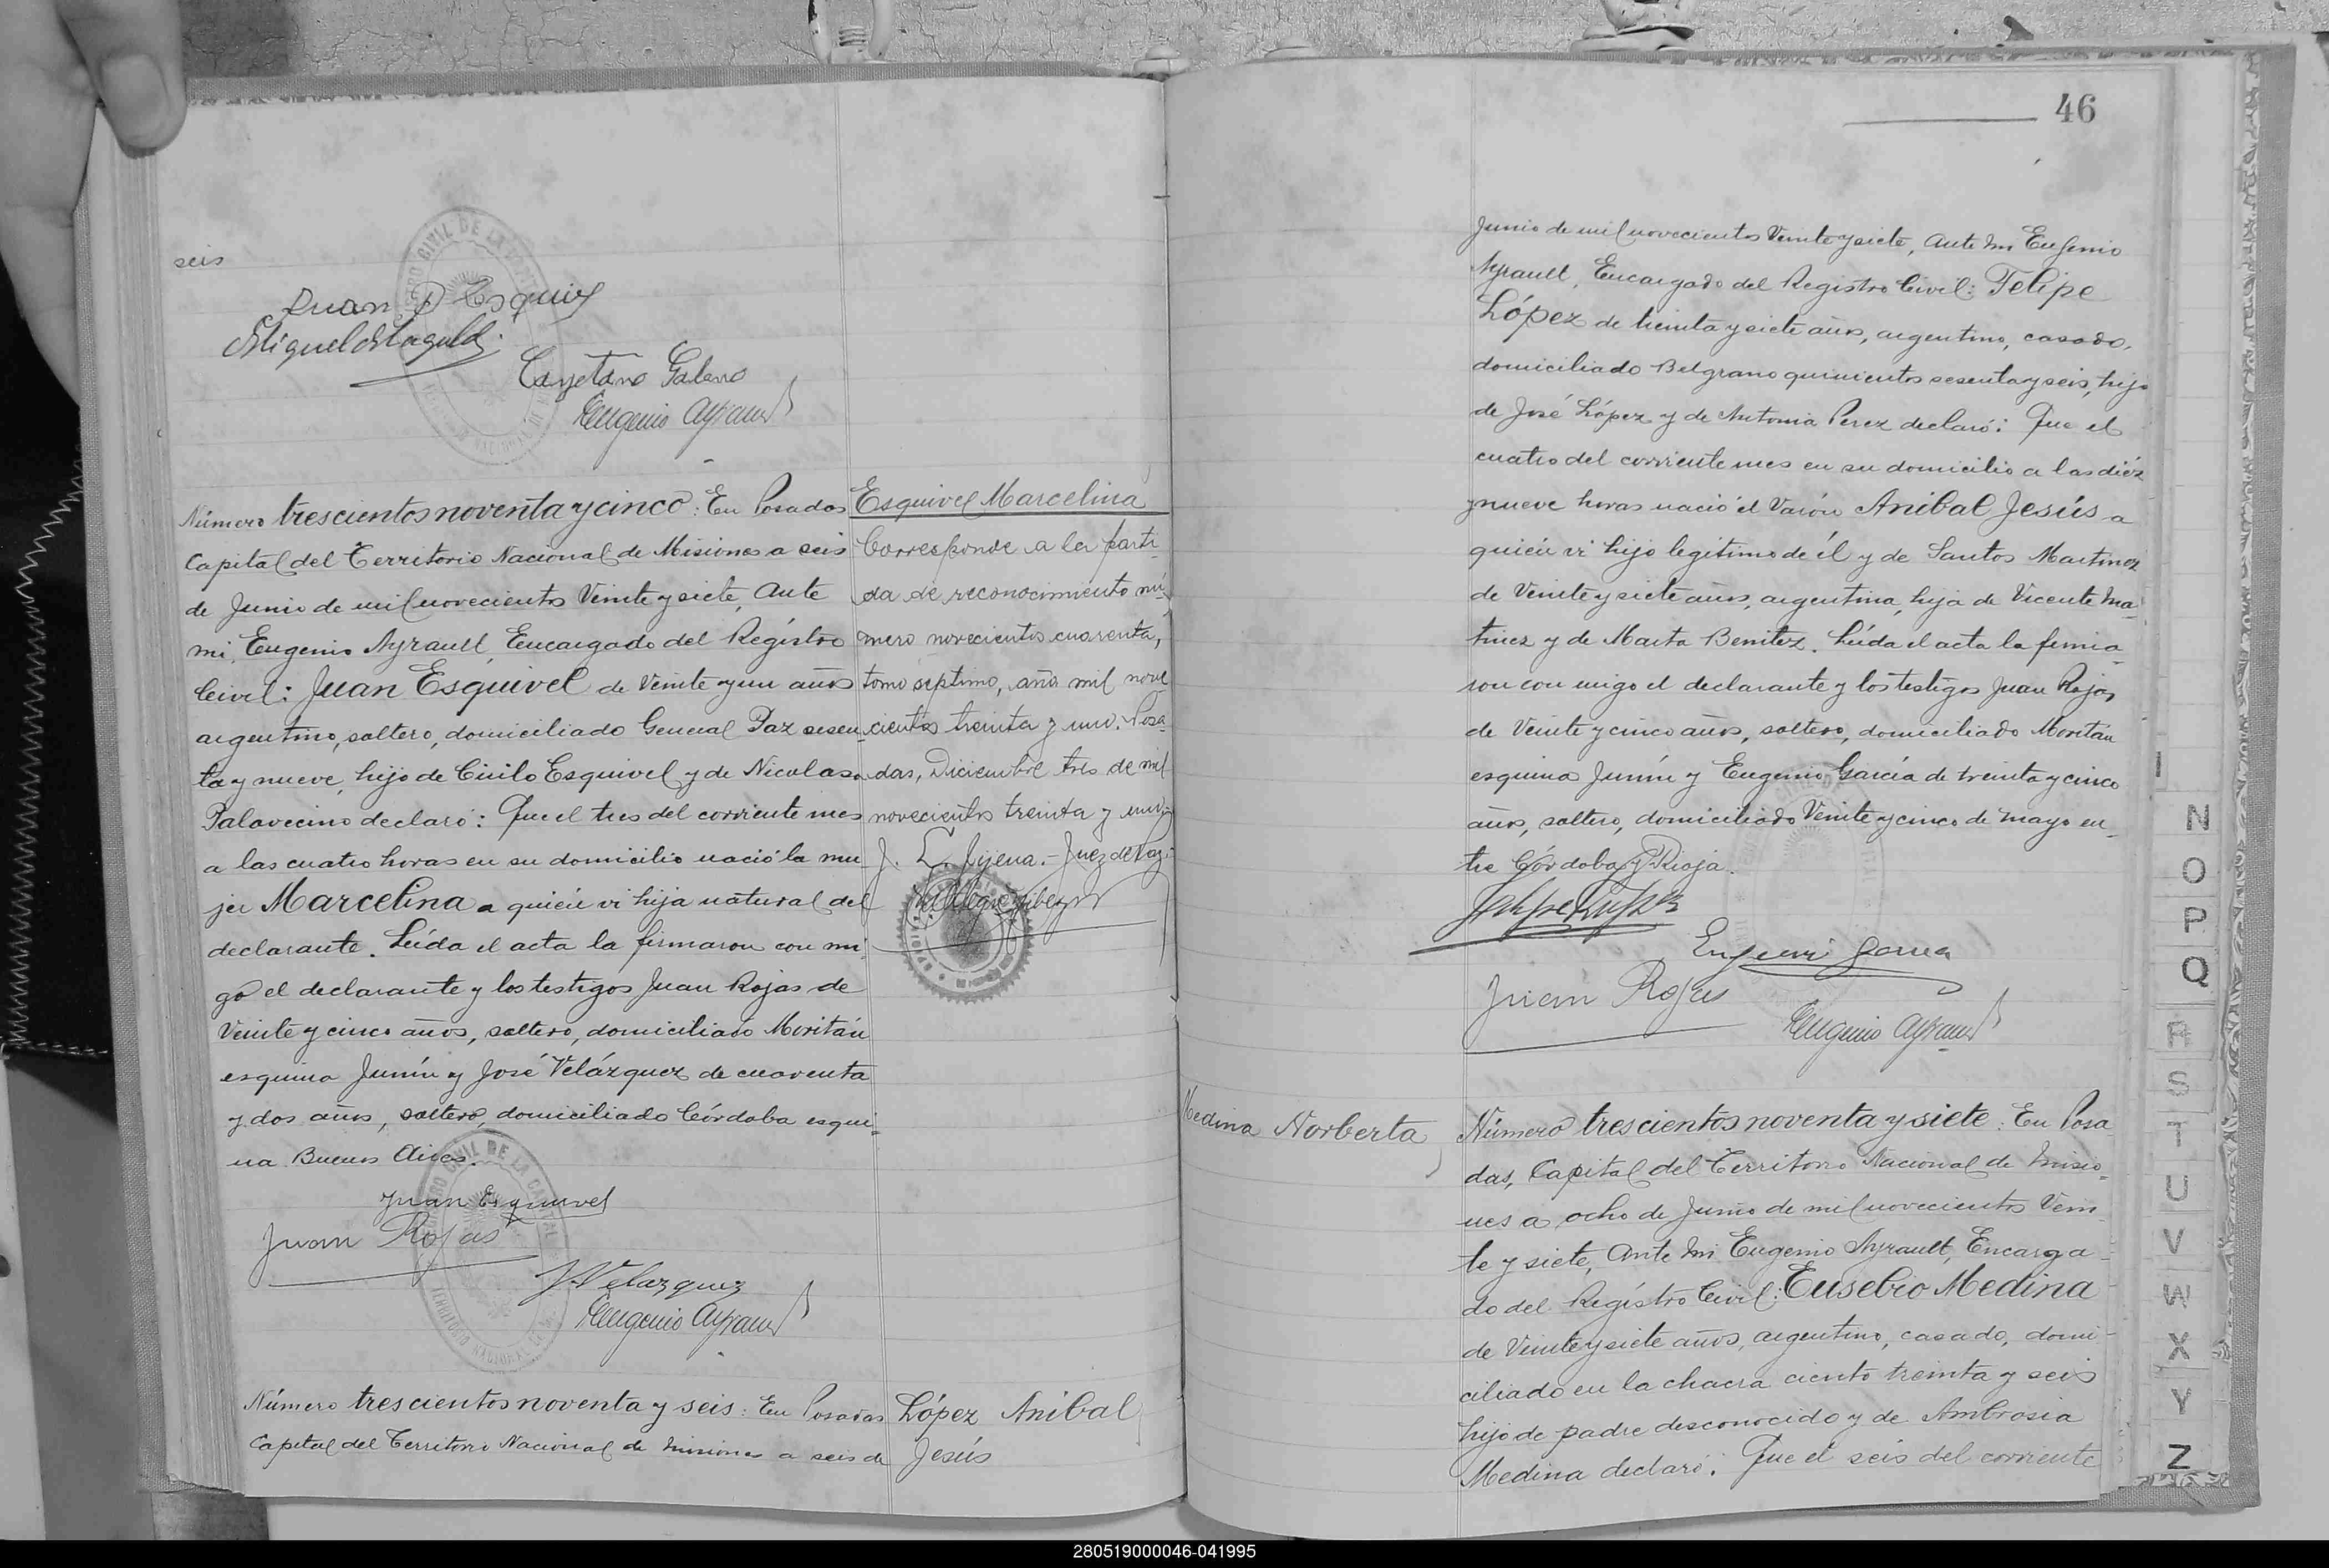 seis
Juan D Esquivel
Cayetano Galeno
Eugenio Ayrault
Número trescientos noventa y cinco: En Posadas
Capital del Territorio Nacional de Misiones a seis
de Junio de mil novecientos Veinte y siete, Ante
mi, Eugenio Ayrault, Encargado del Registro
Civil: Juan Esquivel de Veinte y un años
argentino, soltero, domiciliado General Paz sesen-
ta y nueve, hijo de Cirilo Esquivel y de Nicolasa
Palavecino declaró: Que el tres del corriente mes
a las cuatro horas en su domicilio nació la mu-
jer Marcelina a quién vi hija natural del
declarante. Leída el acta la firmaron con mi-
go el declarante y los testigos Juan Rojas de
Veinte y cinco años, soltero, domiciliado Moritán
esquina Junín y José Velázquez de cuarenta
y dos años, soltero, domiciliado Córdoba esqui-
na Buenos Aires.
Juan Esquivel
Juan Rojas
J. Velazquez
Eugenio Ayrault
Esquivel Marcelina
Corresponde a la parti-
da de reconocimiento nú-
mero novecientos cuarenta,
tomo séptimo, año mil nove
cientos treinta y uno. Posa-
das, Diciembre tres de mil
novecientos treinta y uno.
J. L. Jijena.- Juez de Paz.
Número trescientos noventa y seis: En Posadas
Capital del Territorio Nacional de Misiones a seis de
López Anibal
Jesús
46
Junio de mil novecientos Veinte y siete, Ante mi Eugenio
Ayrault, Encargado del Registro Civil: Felipe
López de treinta y siete años, argentino, casado,
domiciliado Belgrano quinientos sesenta y seis, hijo
de José López y de Antonia Perez declaró: Que el
cuatro del corriente mes en su domicilio a las diéz
y nueve horas nació el Varón Anibal Jesús a
quién vi hijo legítimo de él y de Santos Martinez
de Veinte y siete años, argentina, hija de Vicente Ma-
tinez y de Marta Benitez. Leída el acta la firma-
ron con migo el declarante y los testigos Juan Rojas,
de Veinte y cinco años, soltero, domiciliado Moritán
esquina Junín y Eugenio García de treinta y cinco
años, soltero, domiciliado Veinte y cinco de Mayo en-
tre Córdoba y Rioja.
Felipe López
Eugenio Garcia
Juan Rojas
Eugenio Ayrault
Medina Norberta
Número trescientos noventa y siete: En Posa-
das, Capital del Territorio Nacional de Misio-
nes a ocho de Junio de mil novecientos Vein-
te y siete, Ante mi Eugenio Ayrault, Encarga-
do del Registro Civil: Eusebio Medina
de Veinte y siete años, argentino, casado, domi-
ciliado en la chacra ciento treinta y seis
hijo de padre desconocido y de Ambrosia
Medina declaró: Que el seis del corriente
N
O
P
Q
R
S
T
U
V
W
X
Y
Z
280519000046-041995